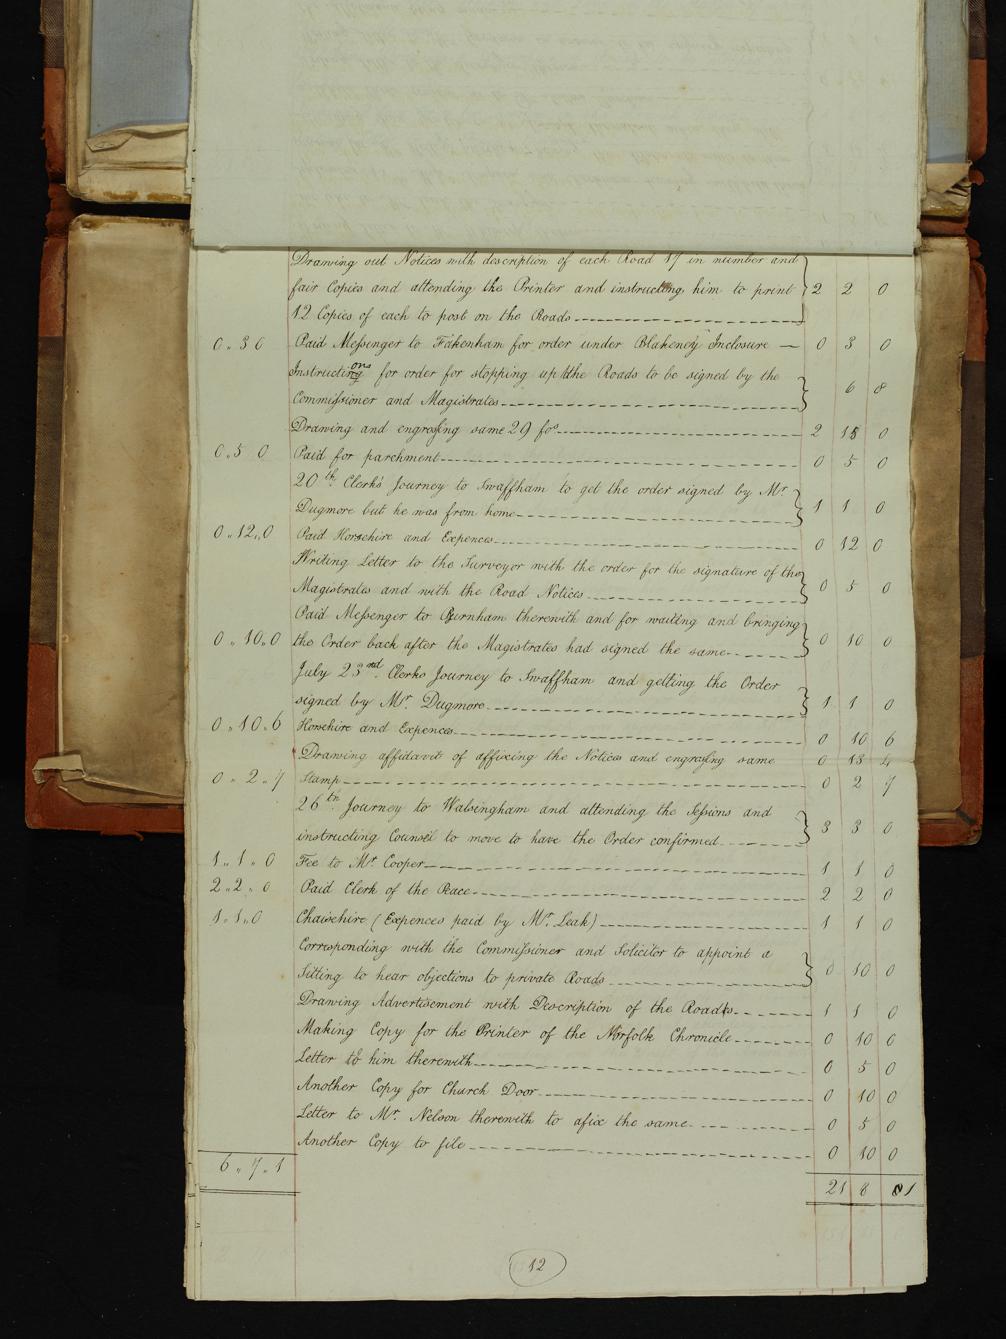 Drawing out Notices with description of each Road 17 in number and
fair Copies and attending the Printer and instructing him to print 2 2 0
12 Copies of each to post on the Roads
0 „ 3 0 Paid Messinger to Fakenham for order under Blakeney Inclosure — 0 3 0
Instructions for order for stopping up the Roads to be signed by the
Commissioner and Magistrates 6 8
Drawing and engrossing same 29 fos. 2 15 0
0 „ 5 0 Paid for parchment 0 5 0
20th. Clerk's Journey to Swaffham to get the order signed by Mr.
Dugmore but he was from home 1 1 0
0 „ 12 „ 0 Paid Horsehire and Expences 0 12 0
Writing Letter to the Surveyor with the order for the signature of the
Magistrates and with the Road Notices 0 5 0
Paid Messenger to Burnham therewith and for waiting and bringing
0 „ 10 „ 0 the Order back after the Magistrates had signed the same 0 10 0
July 23rd. Clerks Journey to Swaffham and getting the Order
signed by Mr. Dugmore 1 1 0
0 „ 10 „ 6 Horsehire and Expences 0 10 6
Drawing affidavit of affixing the Notices and engrossing same 0 13 4
0 „ 2 „ 7 Stamp 0 2 7
26th Journey to Walsingham and attending the Sessions and
instructing Counsel to move to have the Order confirmed 3 3 0
1 „ 1 „ 0 Fee to Mr. Cooper 1 1 0
2 „ 2 „ 0 Paid Clerk of the Peace 2 2 0
1 „ 1 „ 0 Chaisehire (Expences paid by Mr. Leak) 1 1 0
Corresponding with the Commissioner and Solicitor to appoint a
Sitting to hear objections to private Roads 0 10 0
Drawing Advertisement with Description of the Roads 1 1 0
Making Copy for the Printer of the Norfolk Chronicle 0 10 0
Letter to him therewith 0 5 0
Another Copy for Church Door 0 10 0
Letter to Mr. Nelson therewith to afix the same 0 5 0
Another Copy to file 0 10 0
6 „ 7 „ 1
21 8 1
12